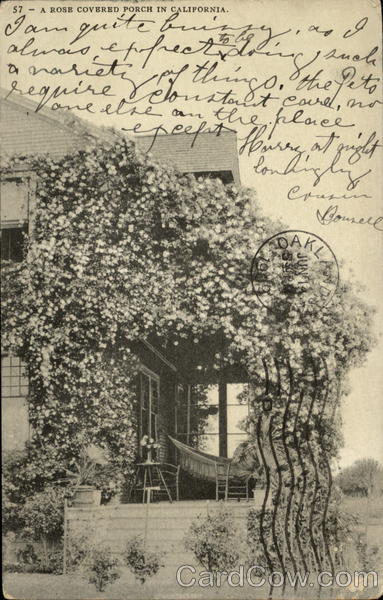 57 - A ROSE COVERED PORCH IN CALIFORNIA.
I am quite busy, as I
always expect to be doing such
a variety of things. the Pets
require constant care, no
one else on the place
except Harry at night
Lovingly
Cousin
OAKLAND
JUN
CardCow.com